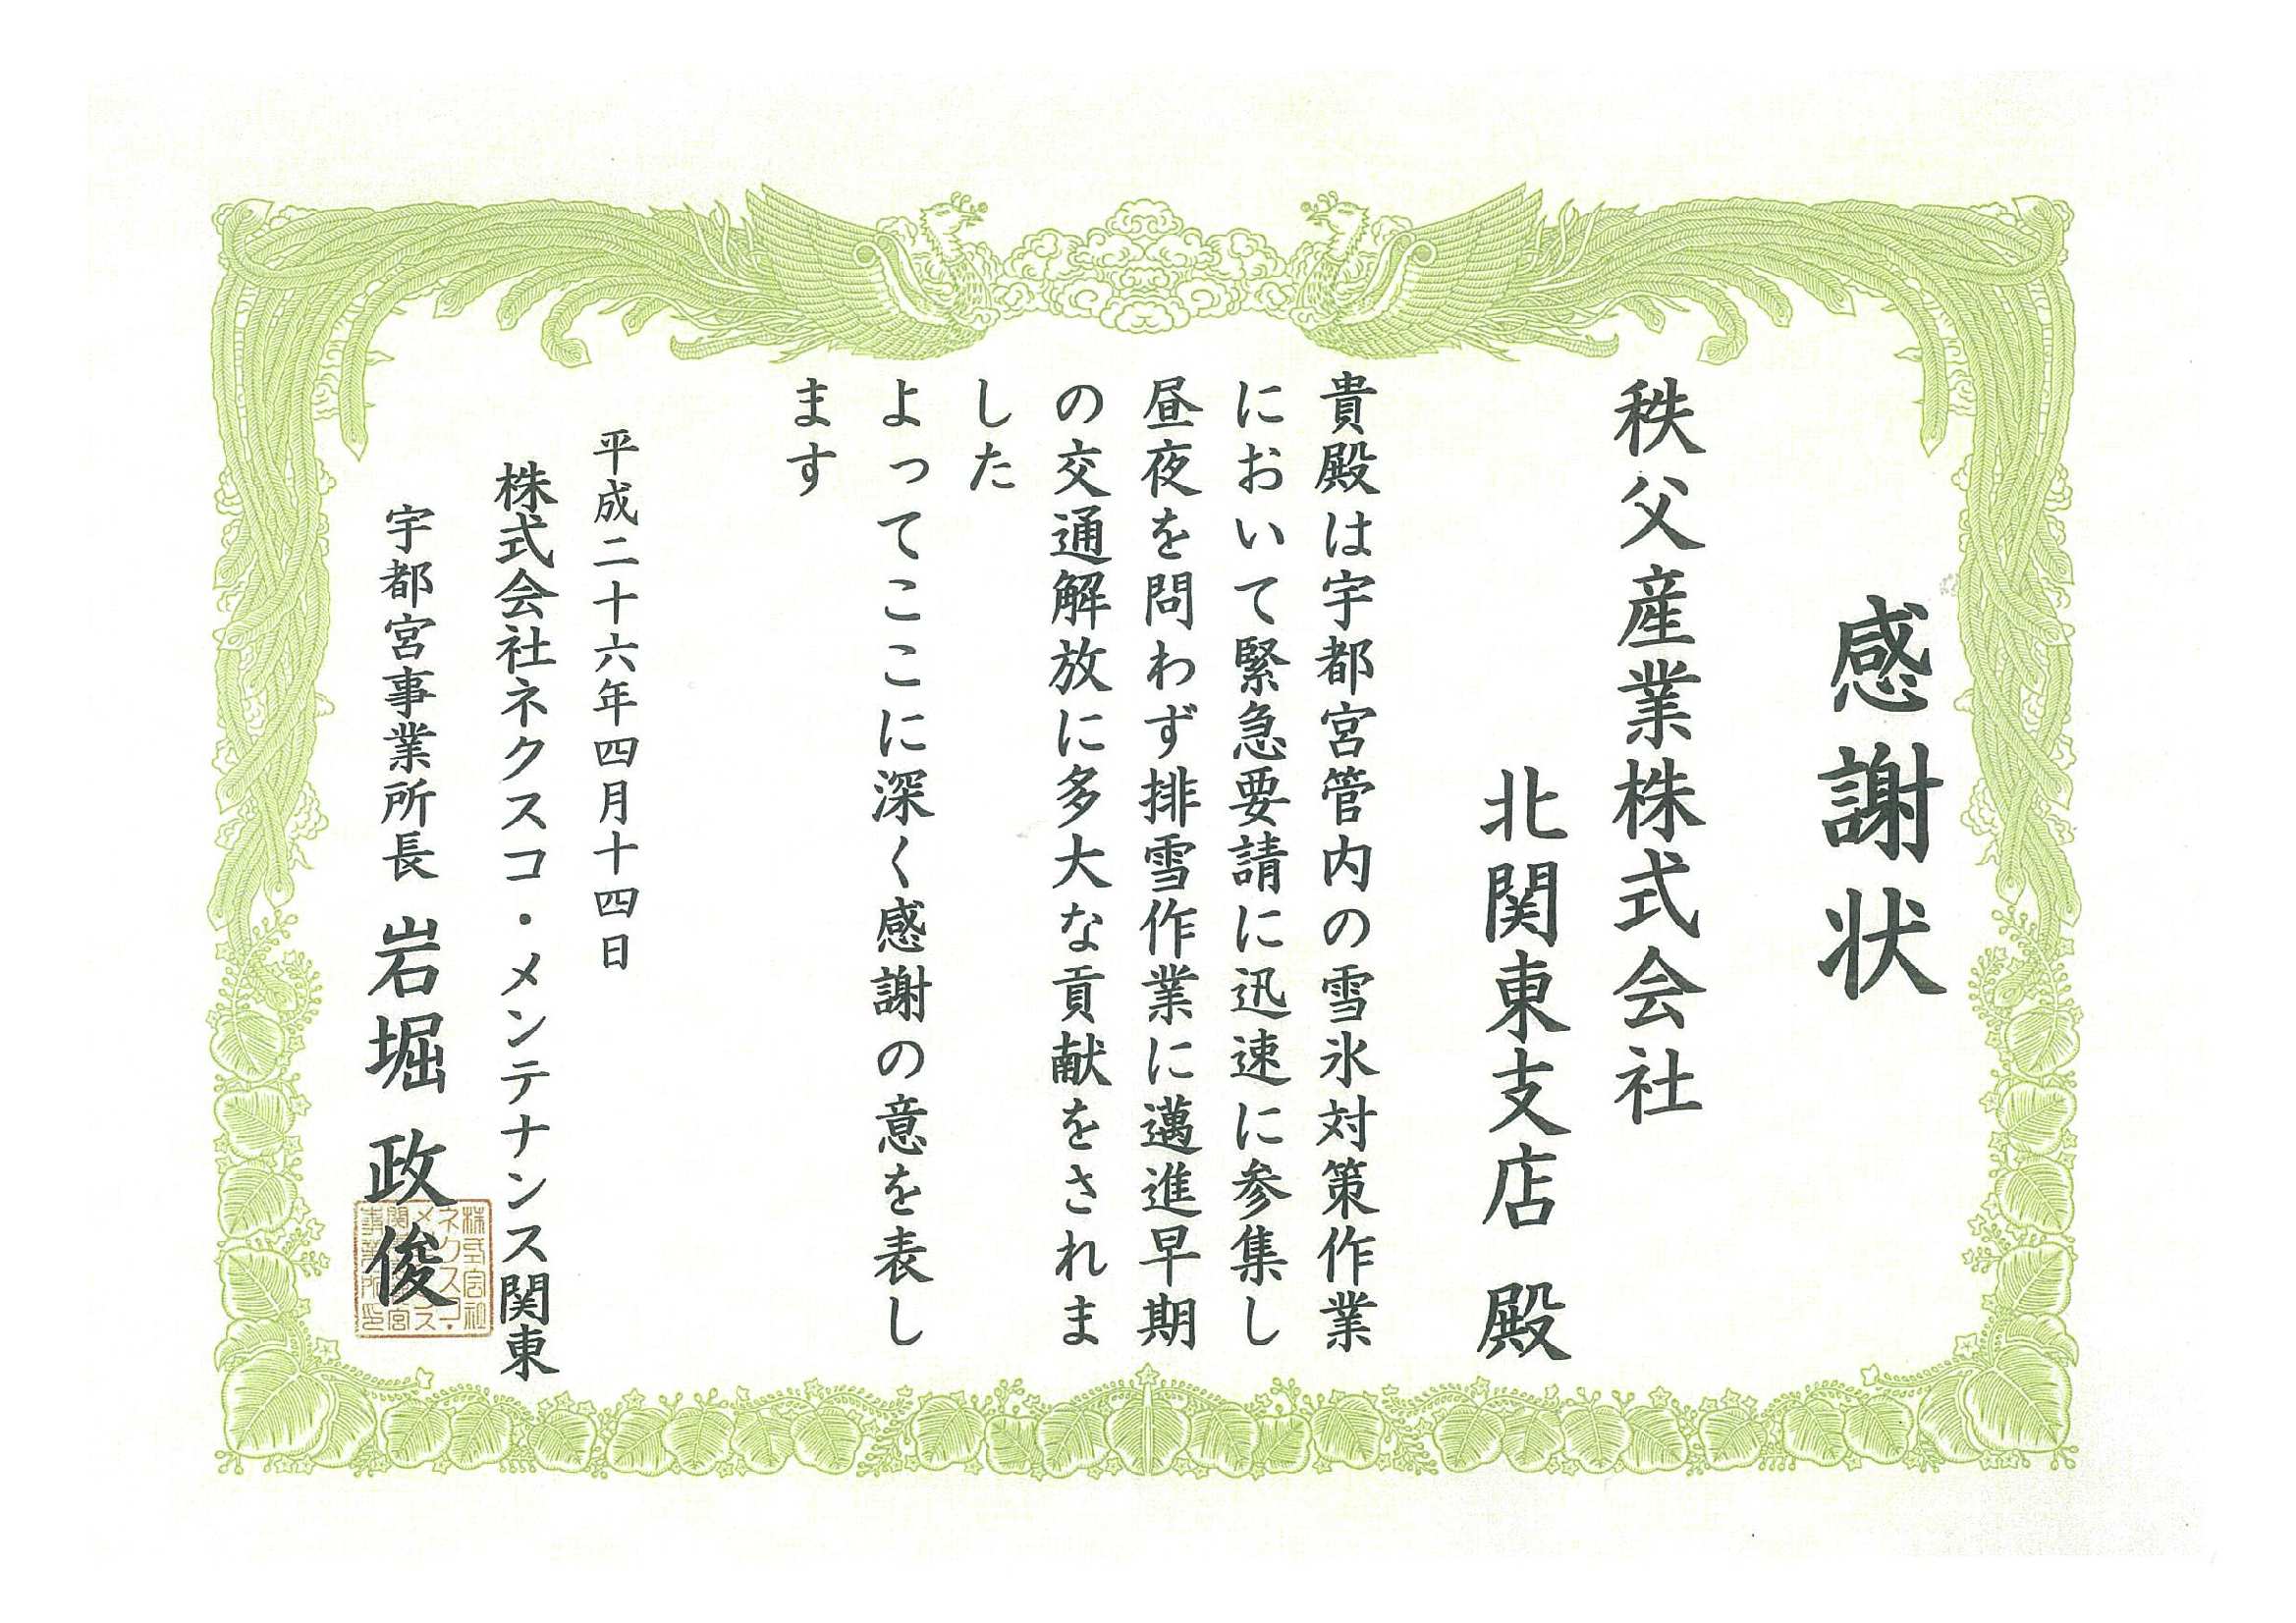 感謝状
秩父産業株式会社
北関東支店 殿
貴殿は宇都宮管内の雪氷対策作業
において緊急要請に迅速に参集し
昼夜を問わず排雪作業に邁進早期
の交通解放に多大な貢献をされま
した
よってここに深く感謝の意を表し
ます
平成二十六年四月十四日
株式会社ネクスコ・メンテナンス関東
宇都宮事業所長 岩堀 政俊